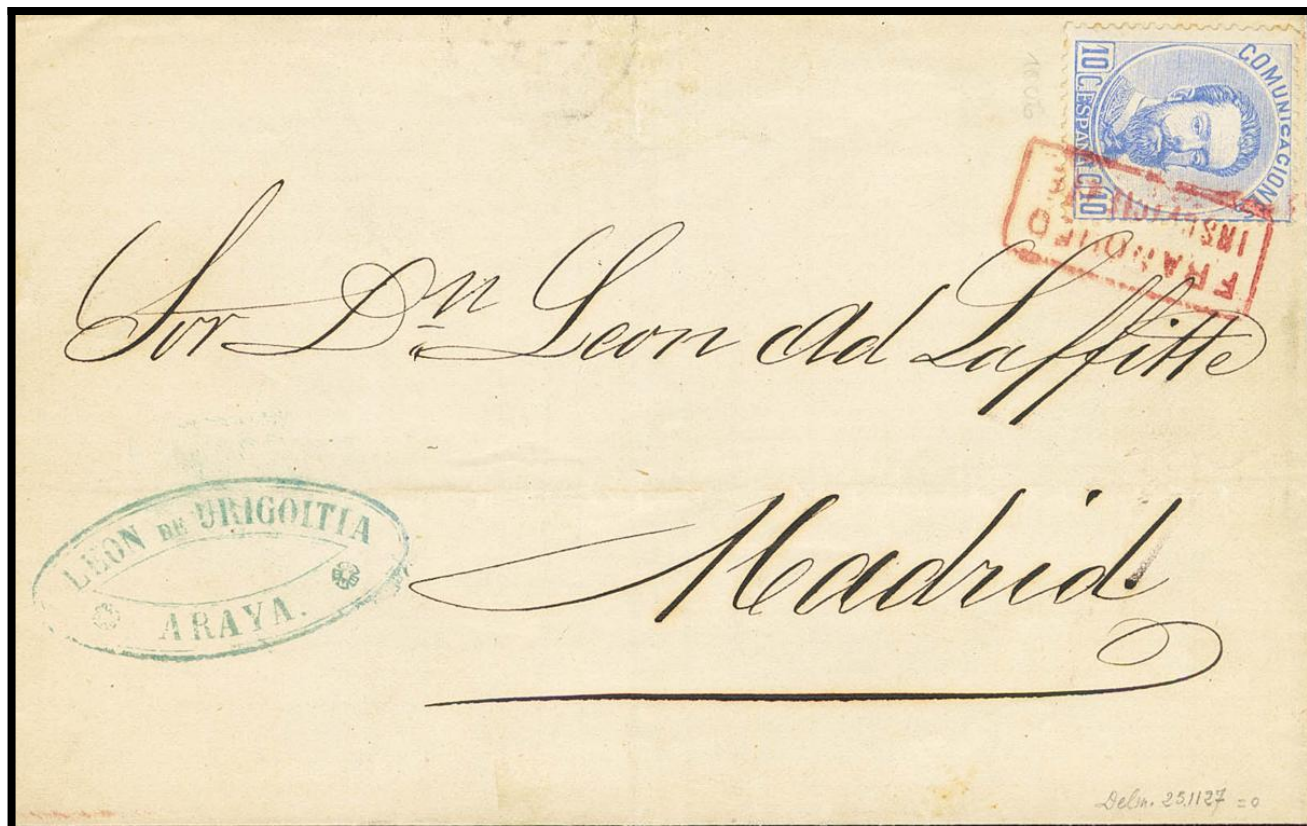 COMUNICACION
10 C. ESPAÑA C. 10
FRANQUEO
INSUFICIE
Sor Dn Leon Ad Laffitte
LEON DE URIGOITIA
ARAYA.
Madrid
Delm. 25.1127 =0